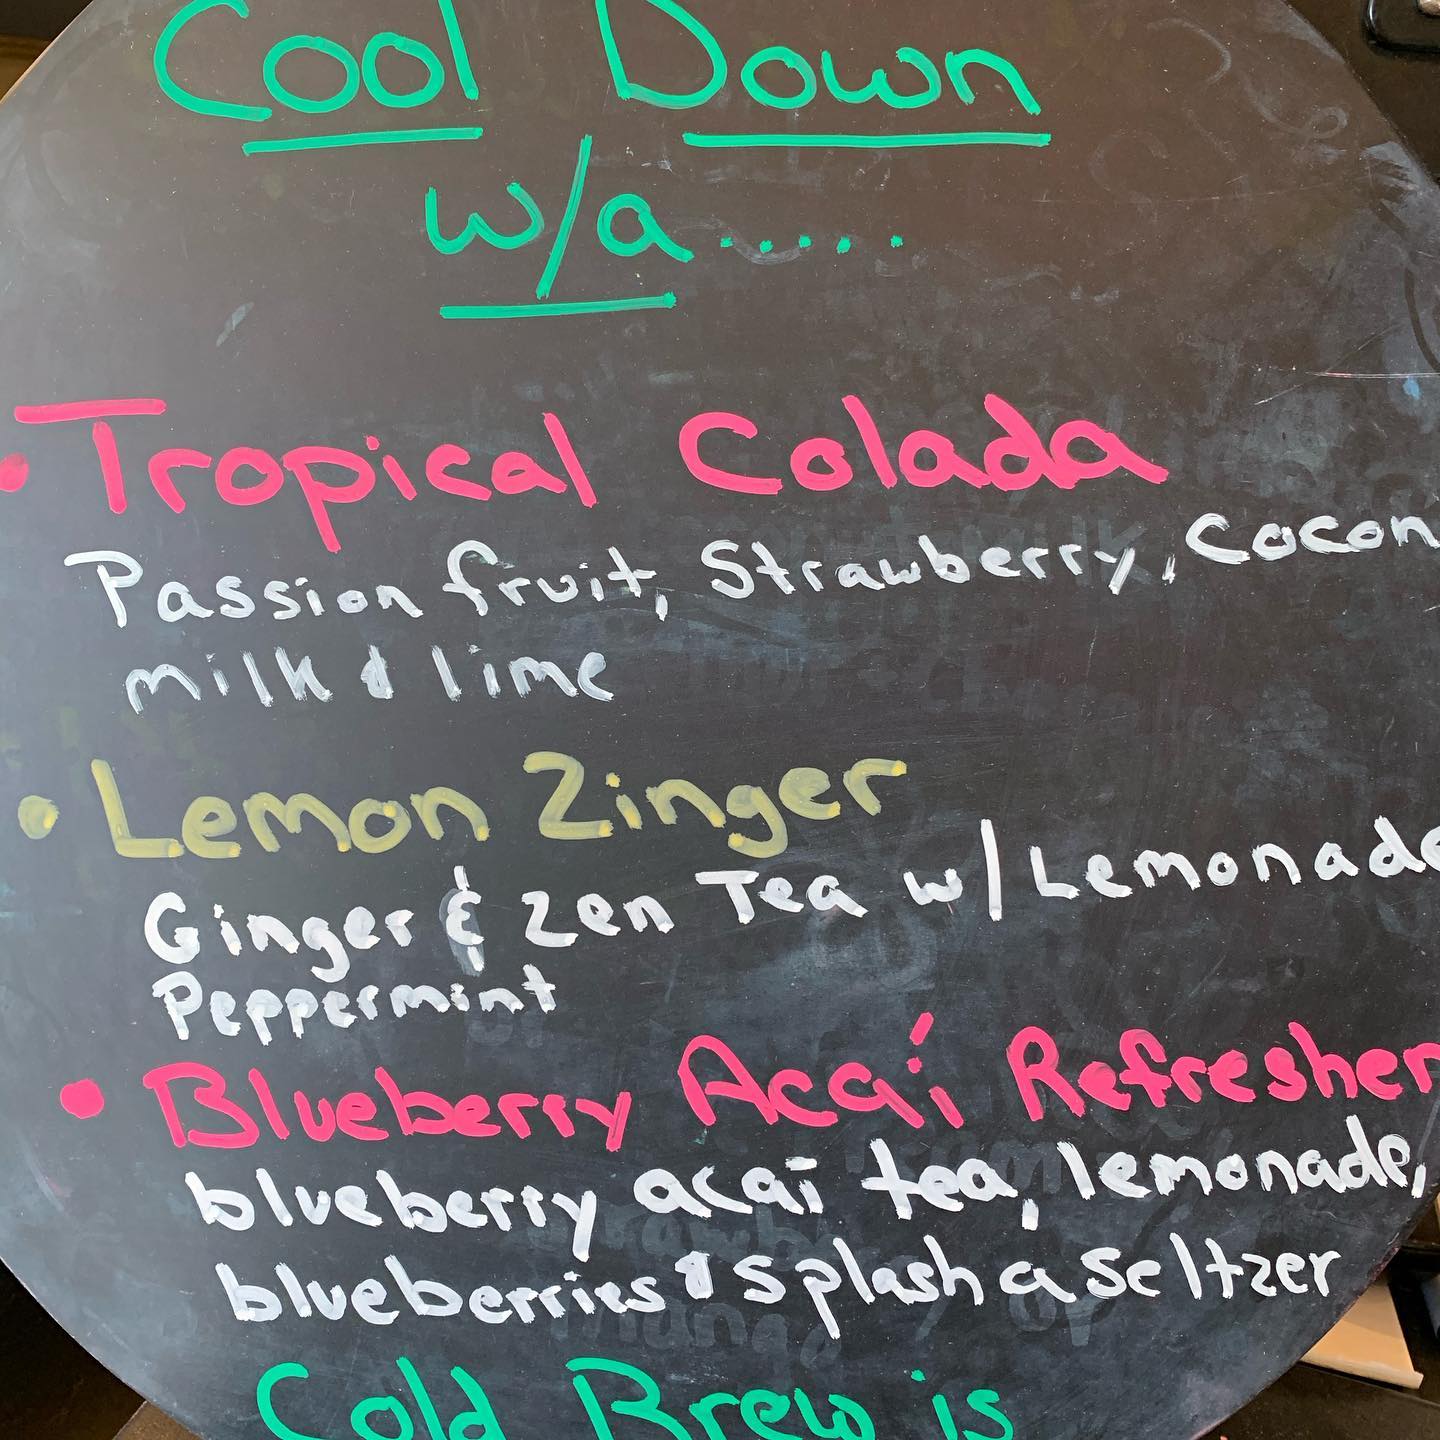 Cool Down
w/a.....
• Tropical Colada
Passion fruit, Strawberry, Cocon
milk & lime
• Lemon Zinger
Ginger & Zen Tea w/ Lemonade
Peppermint
• Blueberry Acaí Refresher
blueberry acai tea, lemonade,
blueberries & splash a seltzer
Cold Brew is